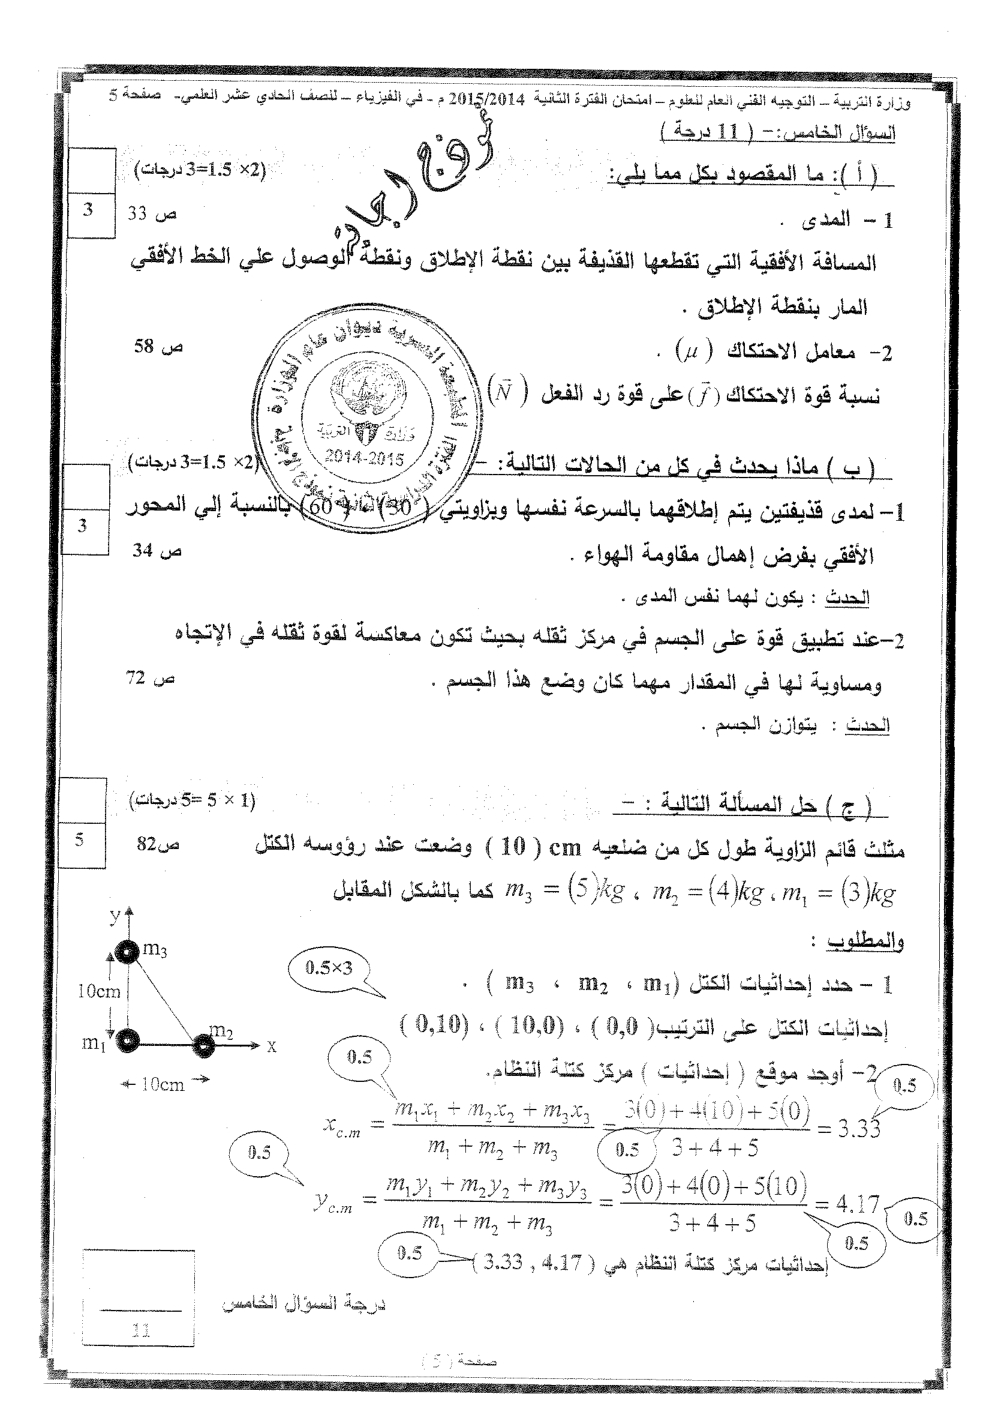 وزارة التربية – التوجيه الفني العام للعلوم – امتحان الفترة الثانية 2015/2014 م - في الفيزياء – للصف الحادي عشر العلمي- صفحة 5
السؤال الخامس:- ( 11 درجة )
نموذج إجابة
( أ ): ما المقصود بكل مما يلي: (2× 1.5=3 درجات)
3
1 – المدى . ص 33
المسافة الأفقية التي تقطعها القذيفة بين نقطة الإطلاق ونقطة الوصول علي الخط الأفقي
المار بنقطة الإطلاق .
2- معامل الاحتكاك ( μ ) . ص 58
نسبة قوة الاحتكاك (f) على قوة رد الفعل (N)
وزارة التربية
2014-2015
( ب ) ماذا يحدث في كل من الحالات التالية: – (2× 1.5=3 درجات)
3
1– لمدى قذيفتين يتم إطلاقهما بالسرعة نفسها وبزاويتي ( 30) ، ( 60) بالنسبة إلي المحور
الأفقي بفرض إهمال مقاومة الهواء . ص 34
الحدث : يكون لهما نفس المدى .
2–عند تطبيق قوة على الجسم في مركز ثقله بحيث تكون معاكسة لقوة ثقله في الإتجاه
ومساوية لها في المقدار مهما كان وضع هذا الجسم . ص 72
الحدث : يتوازن الجسم .
( ج ) حل المسألة التالية : – (1 × 5 =5 درجات)
5
مثلث قائم الزاوية طول كل من ضلعيه cm ( 10 ) وضعت عند رؤوسه الكتل ص82
m₁ = (3)kg ، m₂ = (4)kg ، m₃ = (5)kg كما بالشكل المقابل
والمطلوب :
y
m₃
10cm
m₁
m₂
x
10cm
1 – حدد إحداثيات الكتل (m₁ ، m₂ ، m₃ ) .
0.5×3
إحداثيات الكتل على الترتيب( 0,0 ) ، ( 10,0) ، (0,10 )
2- أوجد موقع ( إحداثيات ) مركز كتلة النظام.
0.5
0.5
x_c.m = (m₁x₁ + m₂x₂ + m₃x₃)/(m₁ + m₂ + m₃) = (3(0)+4(10)+5(0))/(3+4+5) = 3.33
0.5
0.5
y_c.m = (m₁y₁ + m₂y₂ + m₃y₃)/(m₁ + m₂ + m₃) = (3(0)+4(0)+5(10))/(3+4+5) = 4.17
0.5
0.5
إحداثيات مركز كتلة النظام هي ( 3.33 , 4.17 )
0.5
درجة السؤال الخامس
11
صفحة ( 5 )